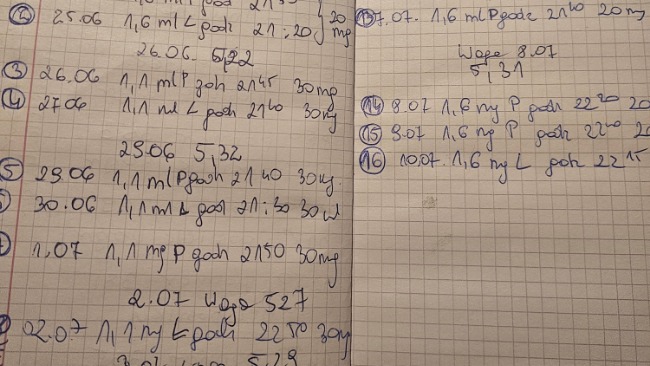 ② 25.06 1,6 ml L godz 21:20 } 20 mg
26.06. 5,22
③ 26.06 1,1 ml P godz 21⁴⁵ 30mg
④ 27.06 1,1 ml L godz 21⁴⁰ 30mg
29.06 5,32
⑤ 29.06 1,1 ml P godz 21⁴⁰ 30mg
30.06 1,1 ml L godz 21:30 30
1.07 1,1 mg P godz 21⁵⁰ 30mg
2.07 Waga 527
02.07 1,1 mg L godz 22⁵⁰ 30mg
5,29
⑬ 7.07. 1,6 ml P godz 21⁴⁰ 20 mg
Waga 8.07
5,31
⑭ 8.07 1,6 mg P godz 22²⁰ 20
⑮ 9.07 1,6 mg P godz 22⁴⁰ 20
⑯ 10.07. 1,6 mg L godz 22¹⁵